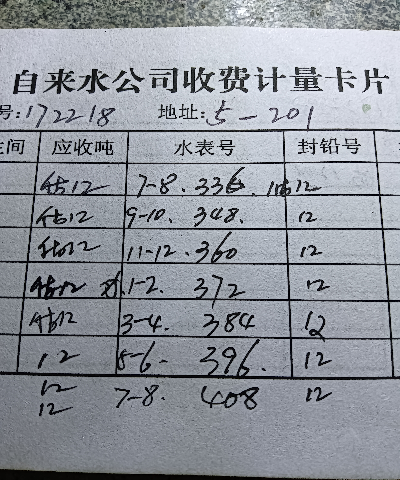 自来水公司收费计量卡片
号:172218 地址:5-201
间 应收吨 水表号 封铅号
估12 7-8. 336. 12
估12 9-10. 348. 12
估12 11-12. 360 12
估12 1-2. 372 12
估12 3-4. 384 12
12 5-6- 396. 12
12
12 7-8. 408 12